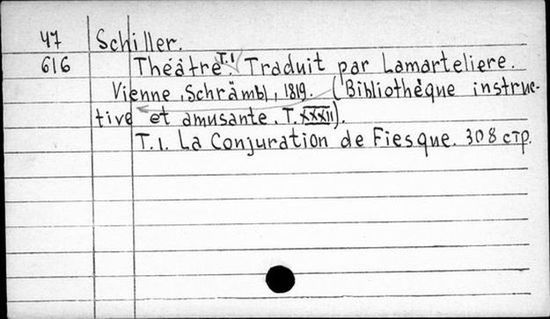 47 Schiller.
616 Théâtre. T.1 Traduit par Lamarteliere.
Vienne, Schrämbl, 1819. (Bibliothèque instruc-
tive et amusante. T. XXXII).
T.1. La Conjuration de Fiesque. 308 стр.